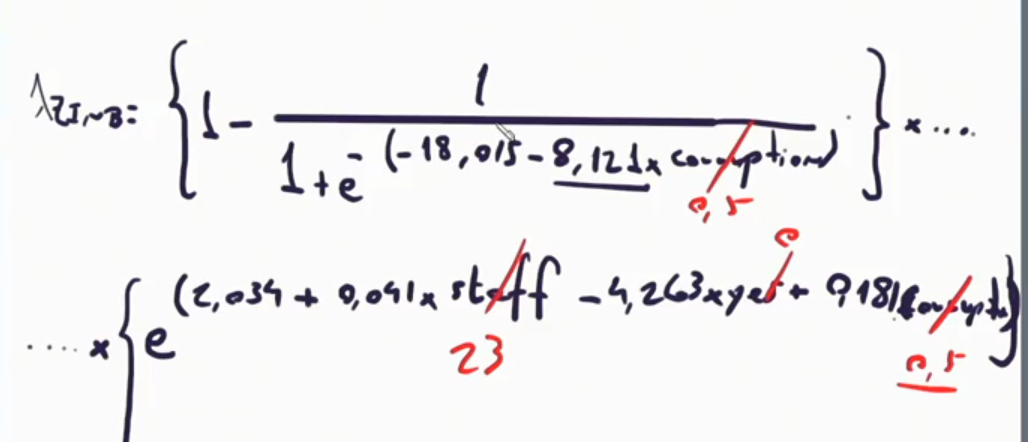 λZINB = { 1 - 1 / 1 + e^-(-18,015 - 8,121 x corruption) } x ....
0,5
0
.... x { e^(2,034 + 0,041 x staff - 4,263 x yes + 0,181 x corruption) }
23
0,5